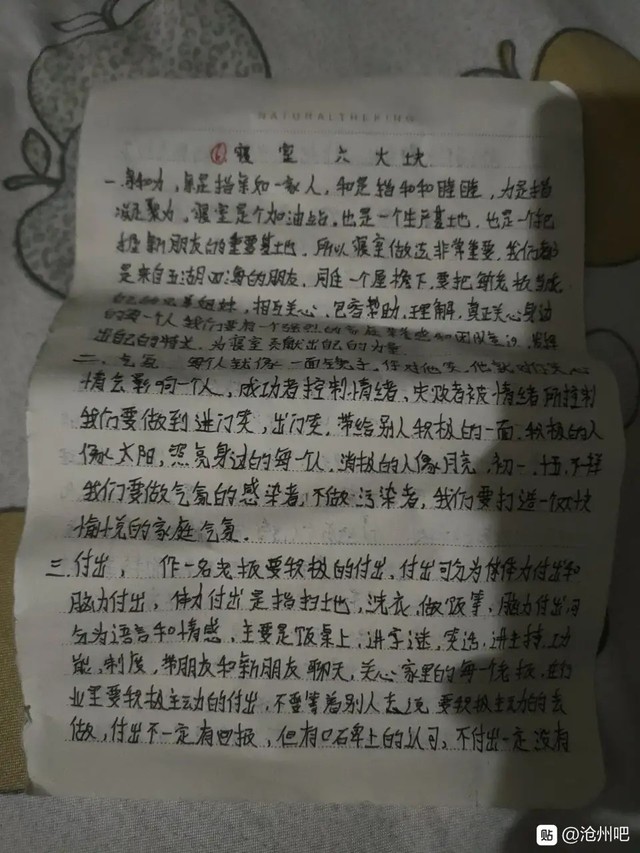 NATURALTHEKING
⑥寝室六大块
一.亲和力,亲是指亲如一家人,和是指和和睦睦,力是指
凝聚力。寝室是个加油站,也是一个生产基地,也是一个把
握新朋友的重要基地,所以寝室做法非常重要,我们都
是来自五湖四海的朋友,同住一个屋檐下,要把新老板当成
自己的兄弟姐妹,相互关心、包容帮助,理解,真正关心身边
的每一个人 我们要有一个强烈的 和团队意识,发挥
出自己的特长,为寝室贡献出自己的力量.
二、气氛 每个人就像一面镜子,你对他笑,他就对你笑,心
情会影响一个人,成功者控制情绪,失败者被情绪所控制
我们要做到进门笑,出门笑,带给别人积极的一面.积极的人
像太阳,照亮身边的每个人,消极的人像月亮,初一、十五,不一样
我们要做气氛的感染者,不做污染者,我们要打造一个欢快
愉悦的家庭气氛.
三.付出, 作一名老板要积极的付出,付出可分为体力付出和
脑力付出,体力付出是指扫地,洗衣,做饭等,脑力付出可
分为语言和情感,主要是饭桌上,讲字迷,笑话,讲主持,功
能,制度,带朋友和新朋友聊天,关心家里的每一个老板,在行
业里要积极主动的付出,不要等着别人去说 要积极主动的去
做,付出不一定有回报,但有口石卑上的认可,不付出一定没有
贴 @沧州吧